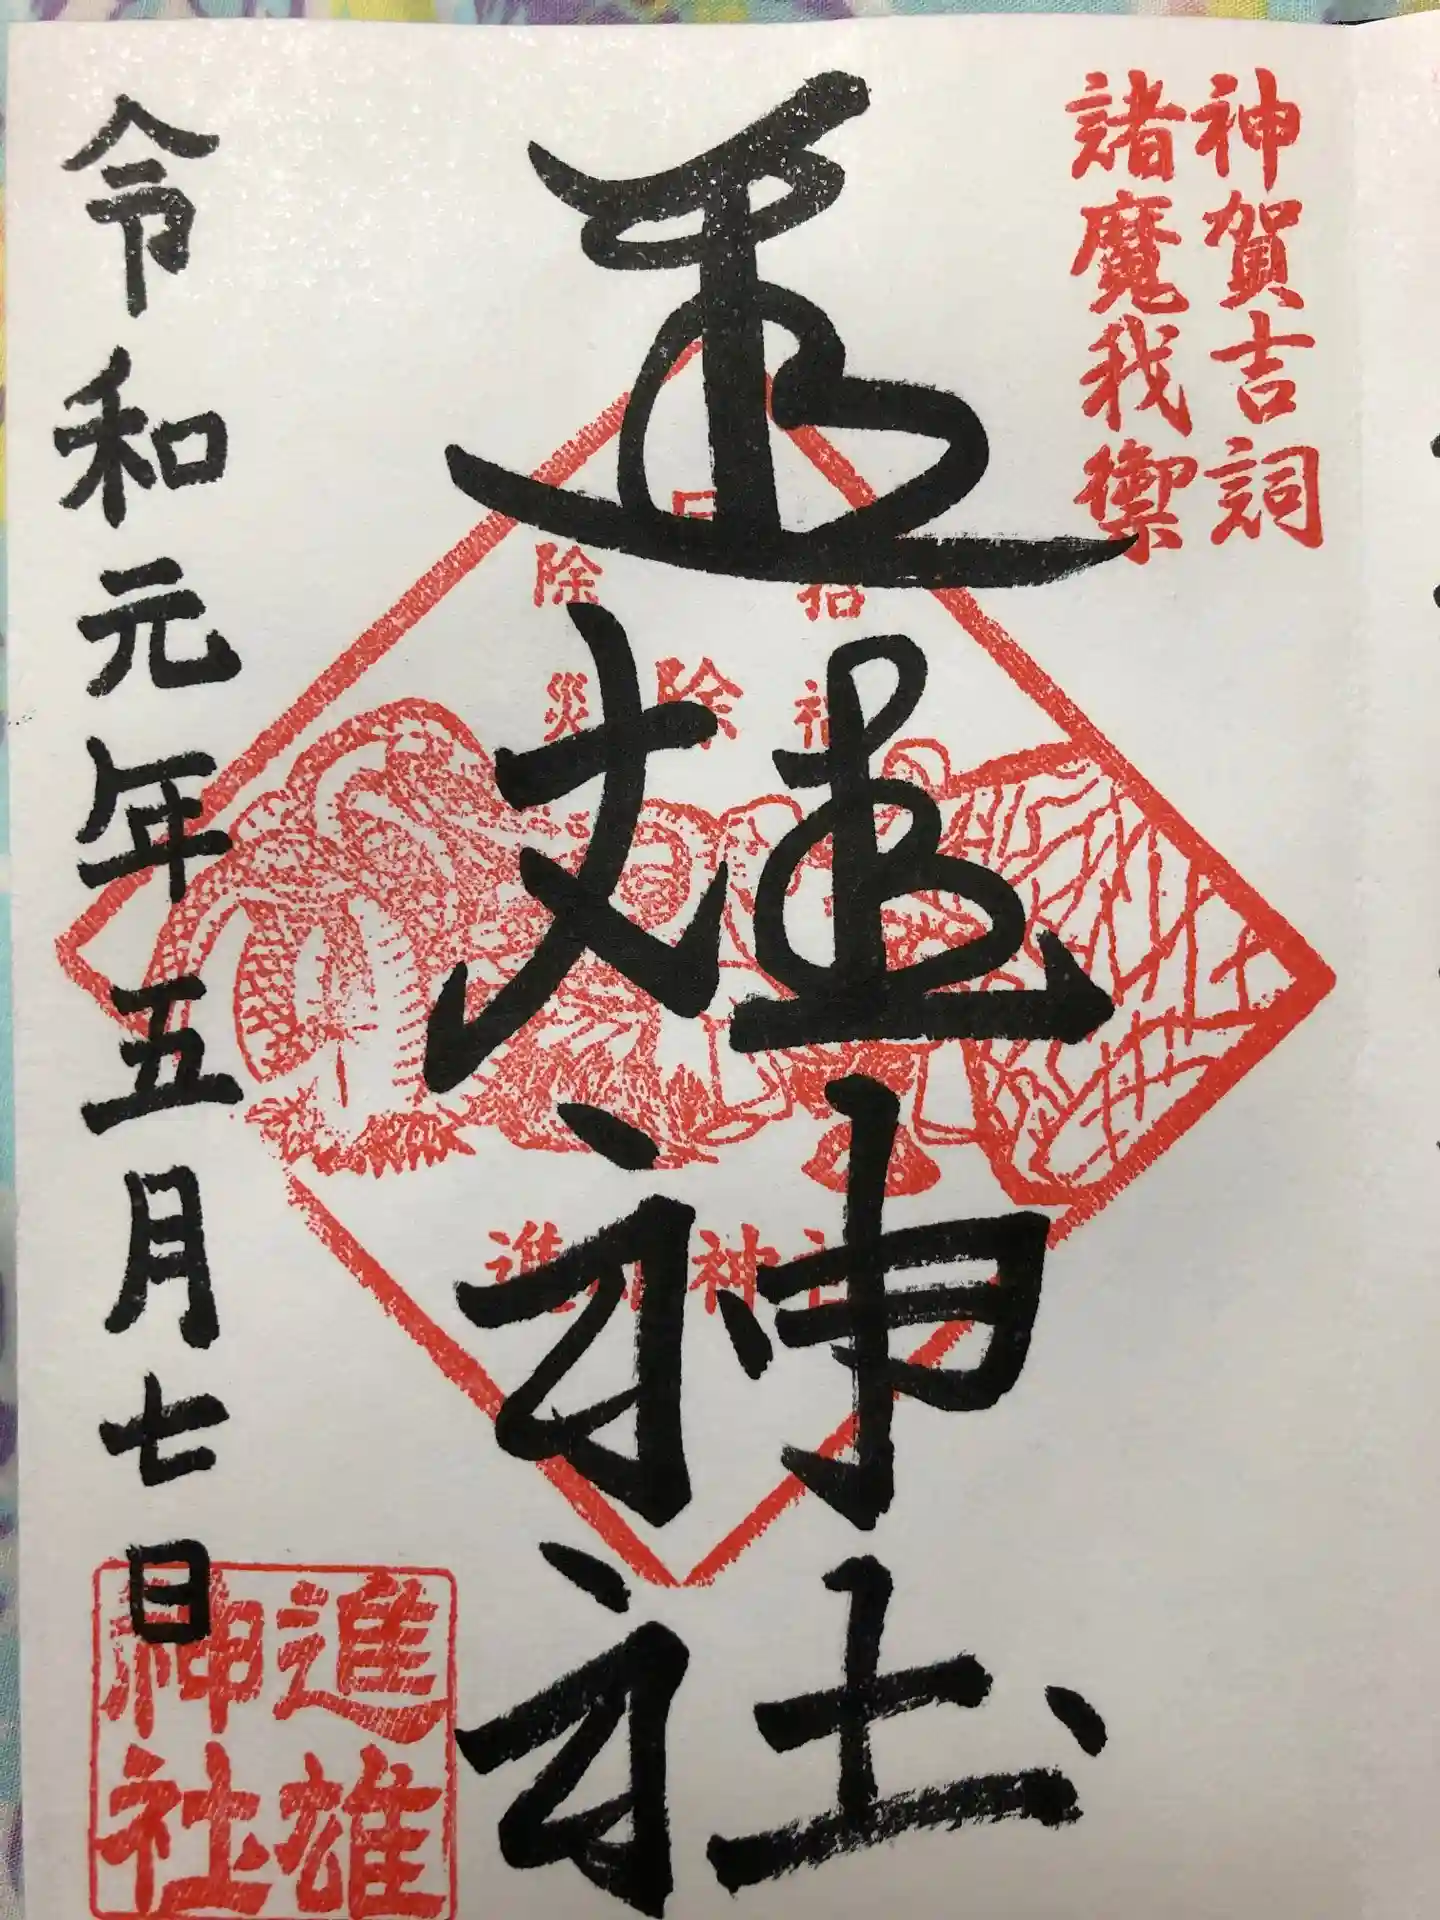 神賀吉詞
諸魔我禦
進雄神社
招福
除
除災
進雄神社
令和元年五月七日
進雄
神社